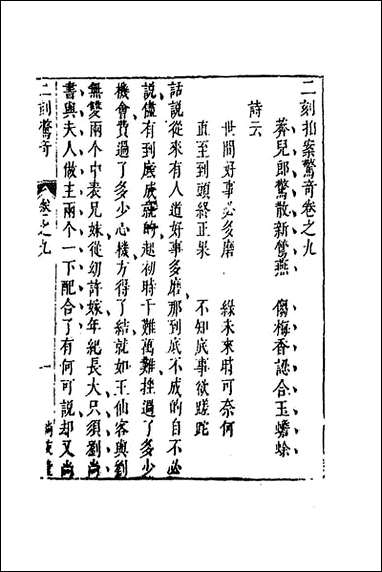 二刻拍案驚奇卷之九
莽兒郎驚散新鶯燕　㑳梅香認合玉蟾蜍
詩云
世間好事必多磨　緣未來時可奈何
直至到頭終正果　不知底事欲蹉跎
話說從來有人道好事多磨那到底不成的自不必
說儘有到底成就的起初時千難萬難挫過了多少
機會費過了多少心機方得了結就如王仙客與劉
無雙兩个中表兄妹從幼許嫁年紀長大只須劉尚
書與夫人做主兩个一下配合了有何可說却又尚
二刻驚奇　卷之九　一　尚友堂